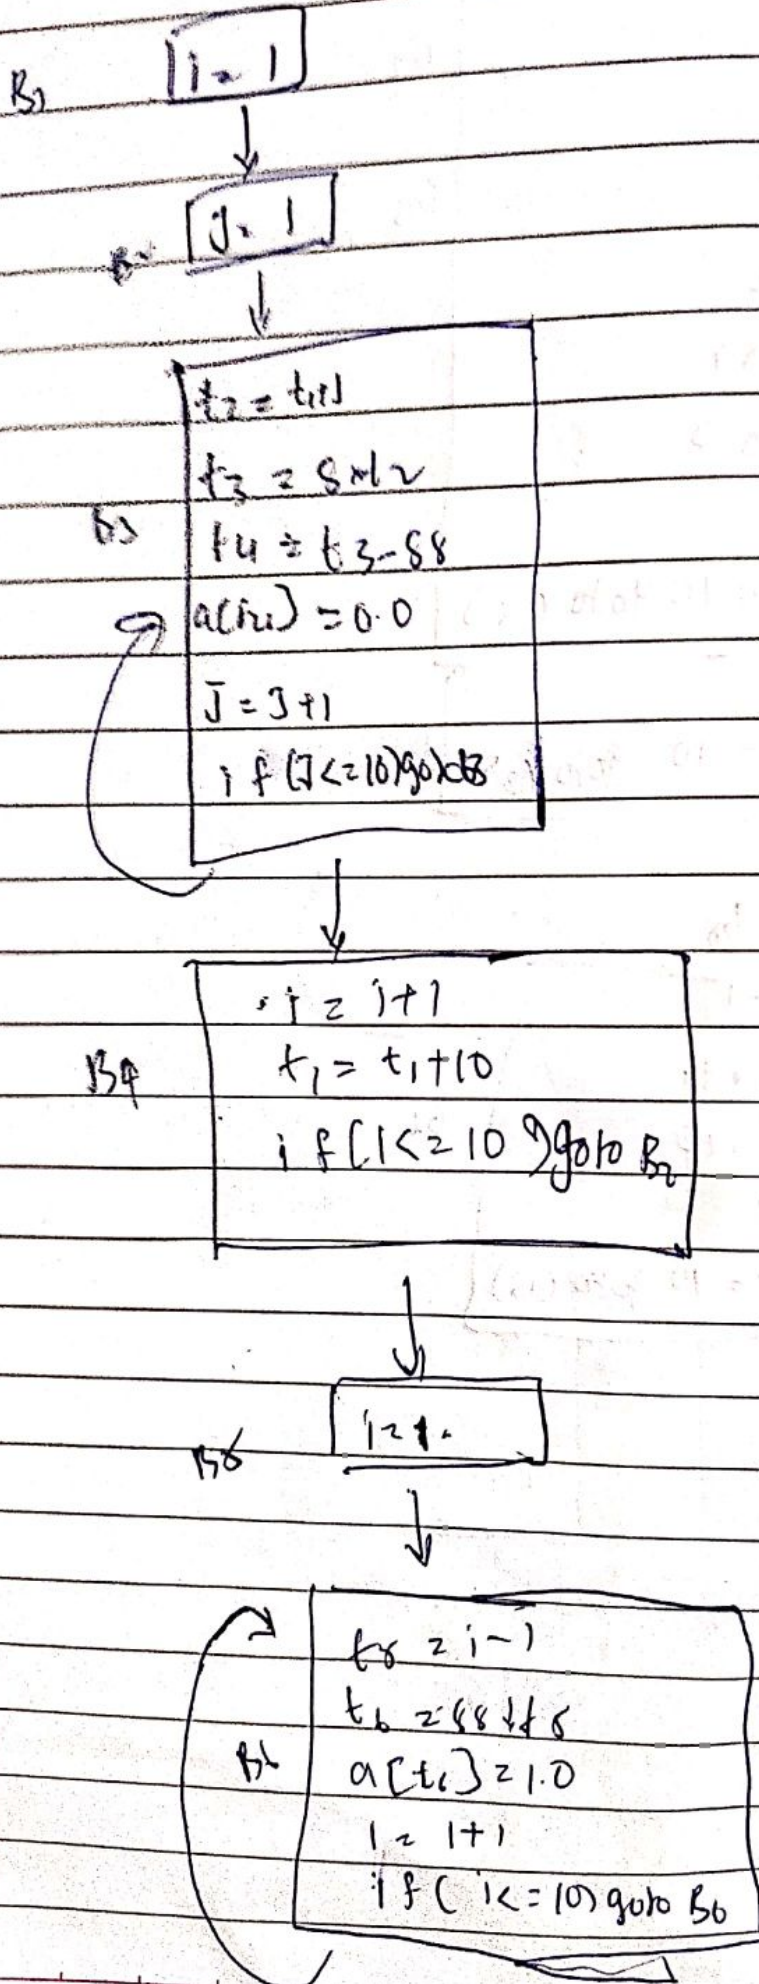 B1
i = 1
j = 1
t2 = t1+J
t3 = 8*t2
B3
t4 = t3-88
a[t4] = 0.0
J = J+1
if (J<=10) goto B3
i = i+1
B4
t1 = t1+10
if (I<=10) goto B2
i=1.
B5
t5 = i-1
t6 = 88*t5
B6
a[t6] = 1.0
i = i+1
if (i<=10) goto B6